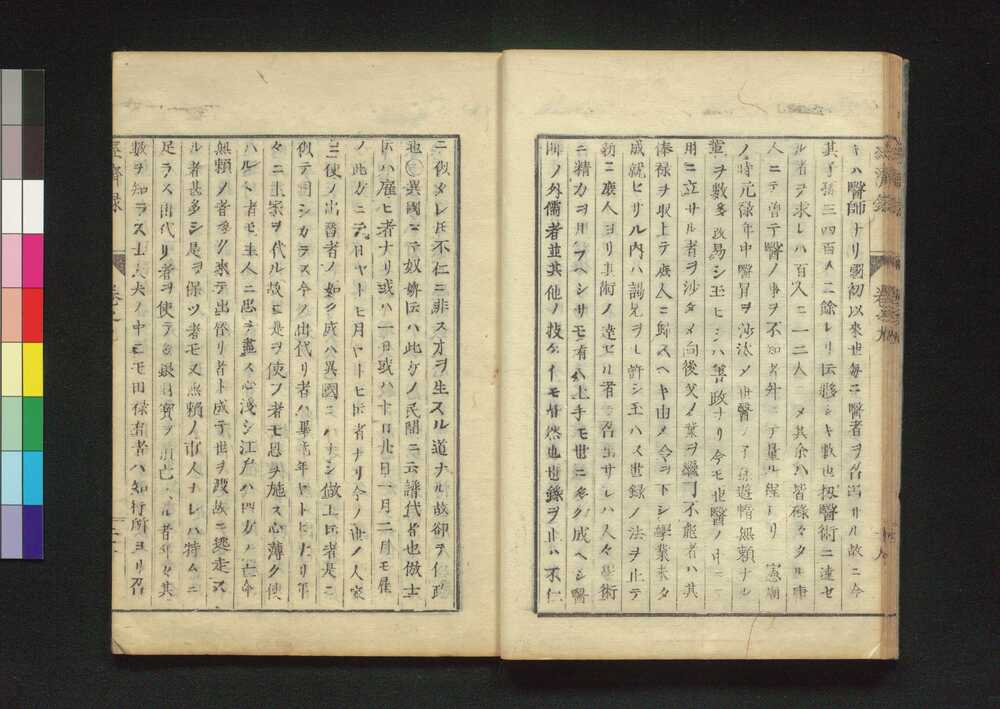 キハ醫師ナリ國初以來世毎ニ醫者ヲ召出サル故ニ今
其子孫三四百人ニ餘レリ夥シキ數也扨醫術ニ達セ
ル者ヲ求レハ百人ニ一二人ニメ其余ハ皆碌々タル庸
人ニテ曽テ醫ノ事ヲ不知者斗ニテ量ル程ナリ 憲廟
ノ時元禄年中醫官ヲ沙汰メ世醫ノ子孫遊惰無頼ナル
輩ヲ數多改易シ玉ヒシハ善政ナリ今モ世醫ノ中ニ
用ニ立サル者ヲ沙タメ向後父ノ業ヲ繼可不能者ハ其
俸禄ヲ収上テ庶人ニ歸スヘキ由メ令ヲ下シ學業未タ
成就セサル内ハ謁見ヲモ許シ玉ハス世録ノ法ヲ止テ
新ニ庶人ヨリ其術ノ達セル者ヲ召出サレハ人々學術
ニ精力ヲ用フヘシサモ有ハ上手モ世ニ多ク成ヘシ醫
師ノ外儒者並其他ノ技々イモ皆然也世録ヲ止ハ不仁
ニ似タレ𪜈不仁ニ非ス才ヲ生スル道ナル故却テ仁政
也○異國ニテ奴婢伝ハ此方ノ民間ニ云譜代者也傲士
伝ハ雇ヒ者ナリ或ハ一日或ハ十日廿日一月二月モ雇
ノ此方ニテ日ヤトヒ月ヤトヒ伝者ナリ今ノ世ノ人家
ニ使ノ出替者ノ如ク成ハ異國ニハナシ傲工伝者是ニ
似テ同シカラス今ノ出代リ者ハ畢竟年ヤトヒナリ年
々ニ主家ヲ代ル故ニ是ヲ使フ者モ恩ヲ施ス心薄ク使
ハルヽ者モ主人ニ忠ヲ盡ス心淺シ江戸ハ四方ノ亡命
無頼ノ者多ク來テ出替リ者ト成テ世ヲ渡故ニ逃走ス
ル者甚多シ是ヲ保ツ者モ又無頼ノ市人ナレハ特ムニ
足ラス出代リ者ヲ使テ金銀財寳ヲ損亡スル者年々其
數ヲ知ラス士大夫ノ中ニモ田禄有者ハ知行所ヨリ召
經濟録
卷之九